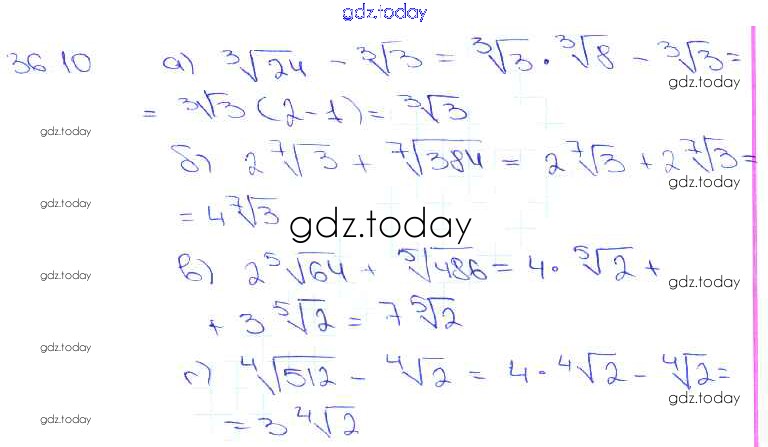 gdz.today
36.10 а) ∛24 - ∛3 = ∛3 · ∛8 - ∛3 =
gdz.today
= ∛3 (2-1) = ∛3
gdz.today
б) 2 ⁷√3 + ⁷√384 = 2 ⁷√3 + 2 ⁷√3 =
gdz.today
= 4 ⁷√3
gdz.today
gdz.today
в) 2 ⁵√64 + ⁵√486 = 4 · ⁵√2 +
gdz.today
gdz.today
+ 3 ⁵√2 = 7 ⁵√2
gdz.today
г) ⁴√512 - ⁴√2 = 4 · ⁴√2 - ⁴√2 =
gdz.today
= 3 ⁴√2
gdz.today